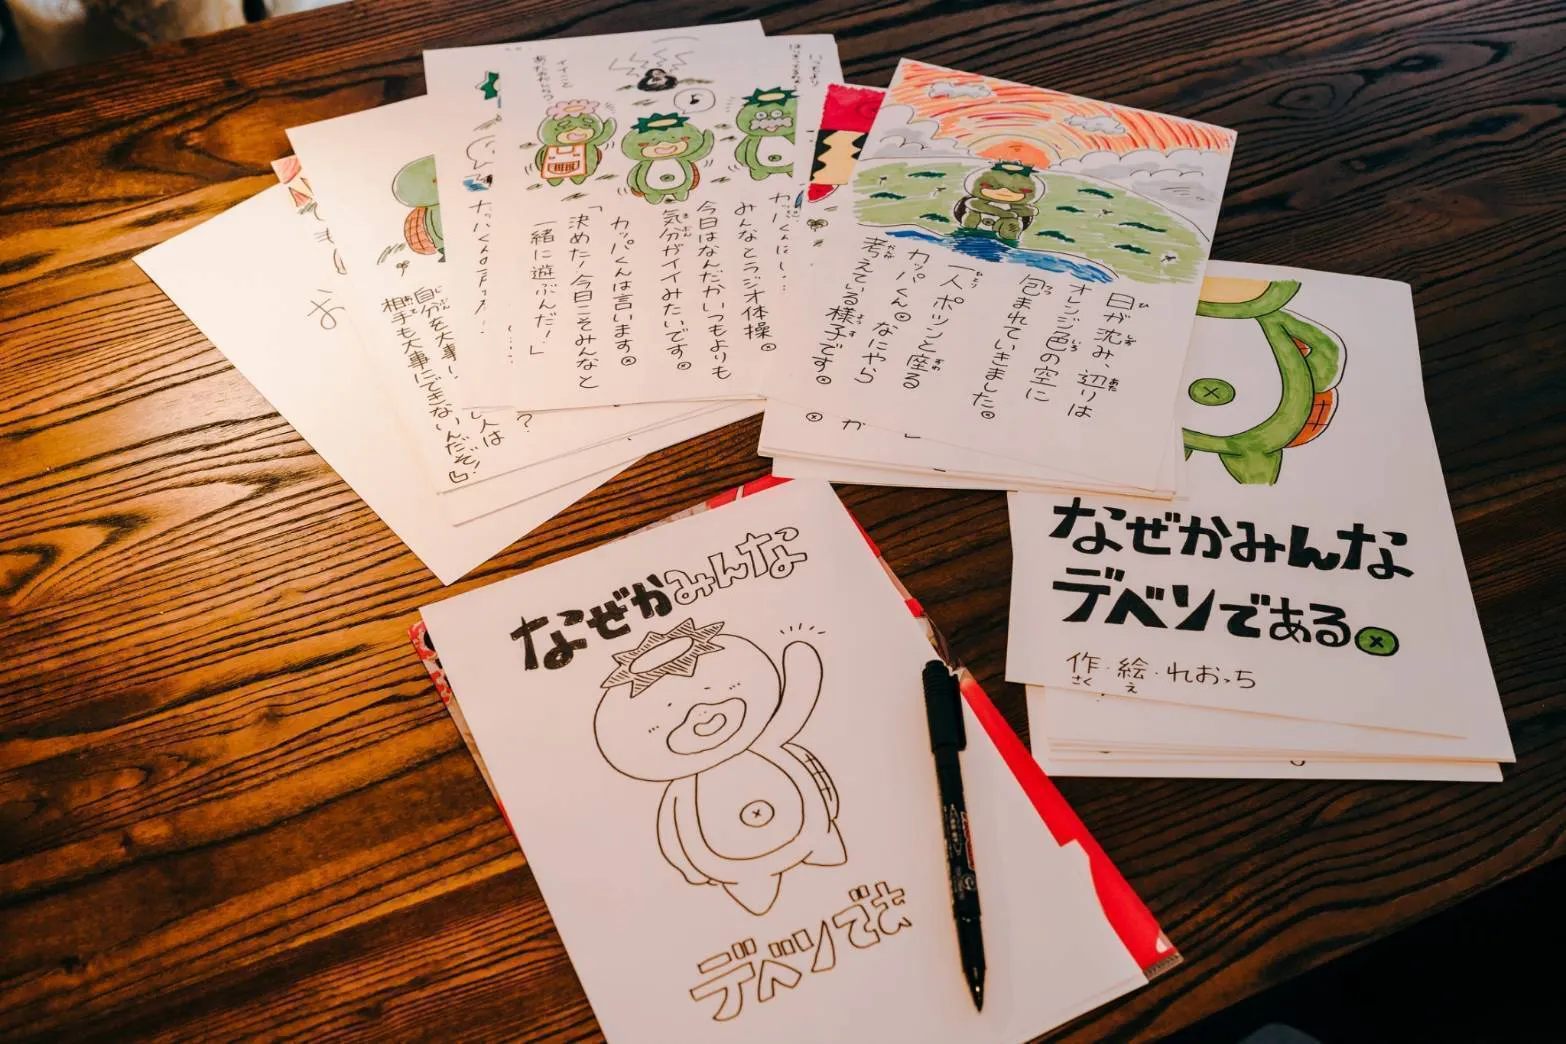 みんなとラジオ体操。
今日はなんだかいつもよりも
気分がイイみたいです。
カッパくんは言います。
「決めた!今日こそみんなと
一緒に遊ぶんだ!」
自分を大事に
相手も大事にできないんだぞ!』
日が沈み、辺りは
オレンジ色の空に
包まれていきました。
一人ポツンと座る
カッパくん。なにやら
考えている様子です。
なぜかみんな
デベソである。
作・絵・れおっち
さく え
なぜかみんな
デベソでき